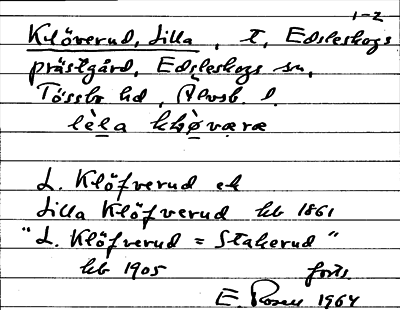 1-2
Klöverud, Lilla, t, Edsleskogs
prästgård, Edsleskogs sn,
Tössbo hd, Älvsb. l.
L. Klöfverud ek
Lilla Klöfverud kb 1861
"L. Klöfverud = Stakerud"
kb 1905 forts.
E. Rosen 1964